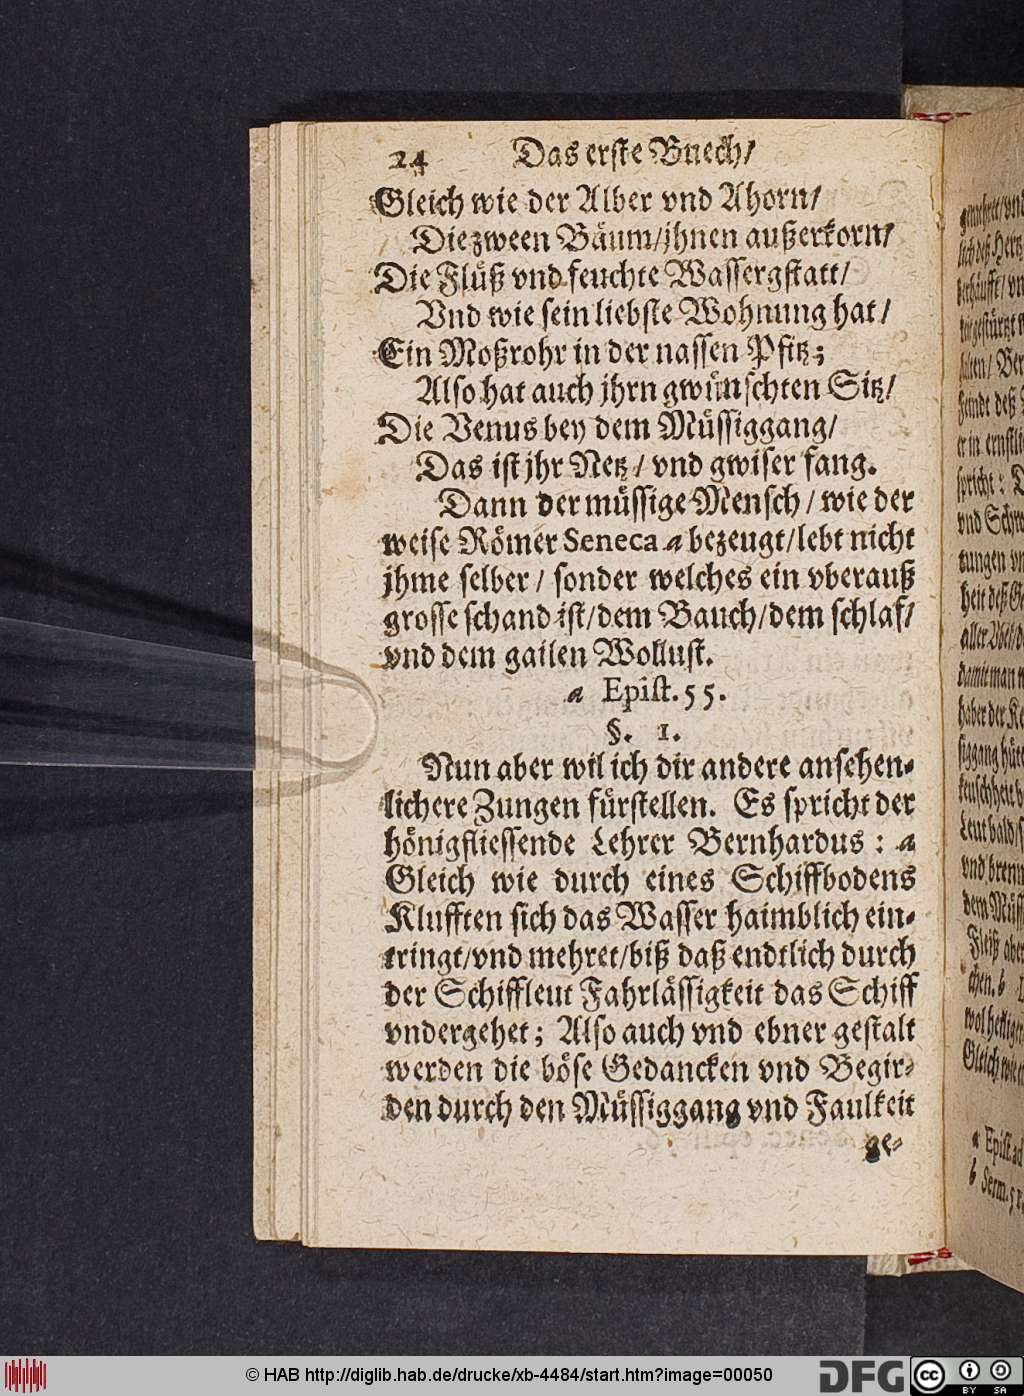 24 Das erste Buech/
Gleich wie der Alber vnd Ahorn/
Die zween Bäum/jhnen außerkorn/
Die Flüß vnd feuchte Wassergstatt/
Vnd wie sein liebste Wohnung hat/
Ein Moßrohr in der nassen Pfitz;
Also hat auch jhrn gwünschten Sitz/
Die Venus bey dem Müssiggang/
Das ist jhr Netz/ vnd gwiser fang.
Dann der müssige Mensch/ wie der
weise Römer Seneca a bezeugt/lebt nicht
jhme selber/ sonder welches ein vberauß
grosse schand ist/dem Bauch/dem schlaf/
vnd dem gailen Wollust.
a Epist. 55.
§. 1.
Nun aber wil ich dir andere ansehen-
lichere Zungen fürstellen. Es spricht der
hönigfliessende Lehrer Bernhardus: a
Gleich wie durch eines Schiffbodens
Klufften sich das Wasser haimblich ein-
tringt/vnd mehret/biß daß endtlich durch
der Schiffleut Fahrlässigkeit das Schiff
vndergehet; Also auch vnd ebner gestalt
werden die böse Gedancken vnd Begir-
den durch den Müssiggang vnd Faulkeit
ge-
spricht:
vnd
tungen
aller
damit man
haber der
Leut bald
vnd
Fleiß aber
chen. b
Gleich wie
a Epist. ad
b Serm. 51.
© HAB http://diglib.hab.de/drucke/xb-4484/start.htm?image=00050
DFG
cc BY SA